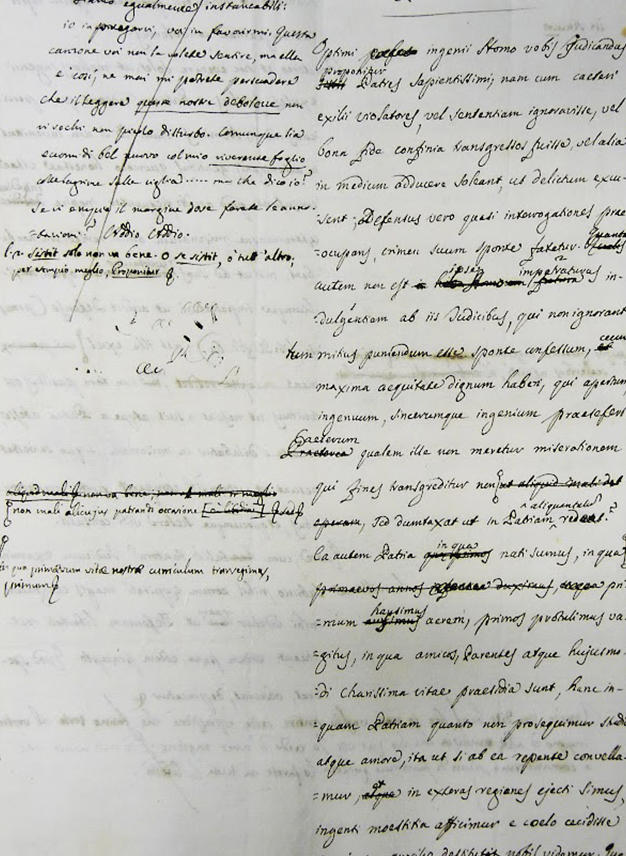 egualmente instancabili:
io in pregarvi, voi in favorirmi. Questa
canzone voi non la volete sentire, ma ella
è così, ne mai mi potrete persuadere
che il leggere queste nostre debolezze non
vi rechi non picolo disturbo. Comunque sia
eccomi di bel nuovo col mio riverente foglio
sulla vigilia ..... ma che dico io?
Se vi empie il margine dove farete le anno-
=tazioni? Addio Addio.
Sistit solo non va bene. O se sistit, o tutt'altro,
per esempio meglio, proponitur
aliquid mali non va bene,
non mali alicujus patrandi occasione
in qua primaevum vitae nostrae curriculum transegimus,
primum
Optimi ingenii Homo vobis judicandus
proponitur
Patres Sapientissimi; nam cum caeteri
exilii violatores, vel sententiam ignoravisse, vel
bona fide confinia transgressos fuisse, vel alia
in medium adducere soleant, ut delictum excu-
=sent; Defensus vero quasi interrogationes prae
=occupans, crimen suum sponte fatetur. Quanta
ipse impetraturus
autem non est in-
=dulgentiam ab iis Judicibus, qui non ignorant
tum mitius puniendum esse sponte confessum,
maxima aequitate dignum haberi, qui apertum
ingenuum, sincerumque ingenium praeseferi
Caeterum
Praeterea qualem ille non meretur miserationem
qui fines transgreditur non ut aliquid mali det
aliquantulum
operam, sed dumtaxat ut in Patriam redeat?
in qua
Ea autem Patria nati sumus, in qua
primaevos annos duximus, pri
hausimus
=mum aerem, primos protulimus va
=gitus, in qua amicos, Parentes atque hujusmo-
=di charissima vitae praesidia sunt, hanc in-
=quam Patriam quanto non prosequimur studi
atque amore, ita ut si ab ea repente convella-
et
=mur, atque in exteras regiones ejecti simus,
ingenti moestitia afficimur e coelo cecidisse
nobis videmur.